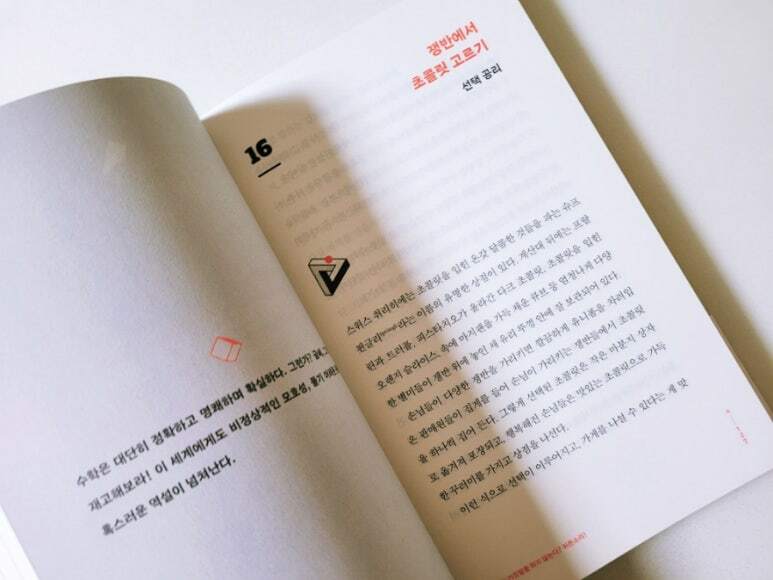 수학은 대단히 정확하고 명쾌하며 확실하다. 그런가?
재고해보라! 이 세계에게도 비정상적인 모호성,
혹스러운 역설이 넘쳐난다.
16
쟁반에서
초콜릿 고르기
선택 공리
스위스 취리히에는 초콜릿을 입힌 온갖 달콤한 것들을 파는 슈프
륑글리라는 이름의 유명한 상점이 있다. 계산대 뒤에는 프랄
린과 트러플, 피스타치오가 올라간 다크 초콜릿, 초콜릿을 입힌
오렌지 슬라이스, 속에 마지팬을 가득 채운 큐브 등 엄청나게 다양
한 별미들이 쟁반 위에 놓인 채 유리 차양 안에 잘 보관되어 있다.
손님들이 다양한 쟁반을 가리키면 깔끔하게 유니폼을 차려입
은 판매원들이 집게를 들어 손님이 가리키는 쟁반들에서 초콜릿
을 하나씩 집어 든다. 그렇게 선택된 초콜릿은 작은 마분지 상자
로 옮겨져 포장되고, 행복해진 손님들은 맛있는 초콜릿으로 가득
한 꾸러미를 가지고 상점을 나선다.
이런 식으로 선택이 이루어지고, 가게를 나설 수 있다는 게 맞